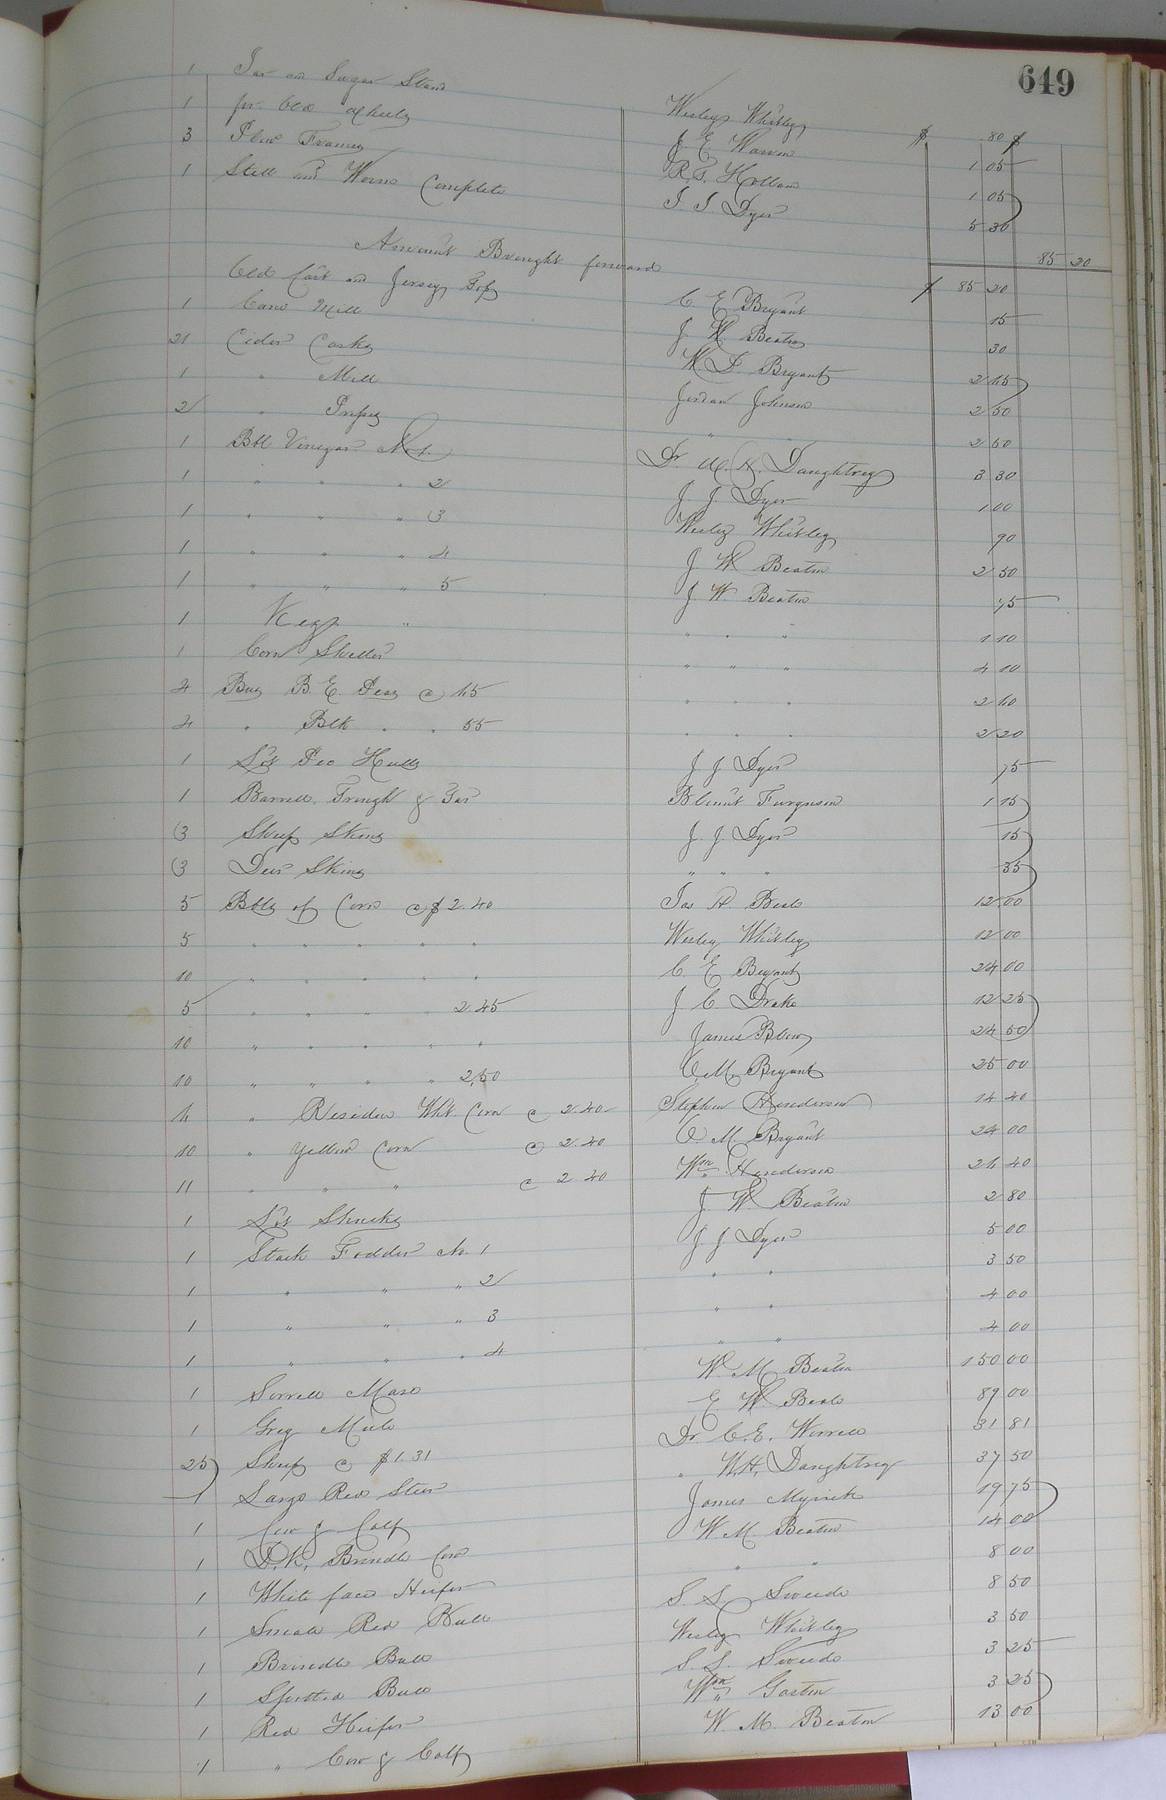 649
1 Jar and Sugar Stand Wesley Whitley $ 80 $
1 pr. Old Wheels J. E. Warren 1 05
3 Plow Frames R. T. Holland 1 05
1 Still and Worm Complete J. J. Dyer 5 30
85 20
Amount Brought forward $ 85 20
Old Cart and Jersey Top C. E. Bryant 15
1 Cane Mill J. W. Beaton 30
21 Cider Casks W. D. Bryant 2 65
1 " Mill Jordan Johnson 2 50
2 " " " 2 60
1 Bbl Vinegar No 1. Dr. W. H. Daughtrey 3 30
1 " " " 2 J. J. Dyer 1 00
1 " " " 3 Wesley Whitley 90
1 " " " 4 J. W. Beaton 2 50
1 " " " 5 J. W. Beaton 75
1 Keg " " " " 1 10
1 Corn Sheller " " " 4 10
4 Bus B. E. Peas @ 65 " " " 2 60
4 " Blk " " 55 " " " 2 20
1 Lot Pea Hulls J. J. Dyer 75
1 Barrell, Trough & Tar Blount Furguson 1 15
3 Sheep Skins J. J. Dyer 15
3 Deer Skins " " " 35
5 Bbls of Corn @ $ 2.40 Jas. A. Beale 12 00
5 " " " " " Wesley Whitley 12 00
10 " " " " " C. E. Bryant 24 00
5 " " " " 2.45 J. C. Drake 12 25
10 " " " " " James Blow 24 50
10 " " " " 2.50 O. M. Bryant 25 00
6 " Residue Wht. Corn @ 2.40 Stephen Henderson 14 40
10 " Yellow Corn @ 2.40 O. M. Bryant 24 00
11 " " " @ 2 40 Wm. Henderson 26 40
1 Lot Shucks J. W. Beaton 2 80
1 Stack Fodder No. 1 J. J. Dyer 5 00
1 " " " 2 " " 3 50
1 " " " 3 " " 4 00
1 " " " 4 " " 4 00
1 Sorrell Mare W. M. Beaton 150 00
1 Grey Mule E. W. Beale 89 00
25 Sheep @ $1.31 Dr. C. E. Worrell 31 81
1 Large Red Steer " W. H. Daughtrey 37 50
1 Cow & Calf James Myrick 19 75
1 D. K. Brindle Cow W. M. Beaton 14 00
1 White face Heifer " " 8 00
1 Small Red Bull S. L. 8 50
1 Brindle Bull Wesley Whitley 3 50
1 Spotted Bull S. L. 3 25
1 Red Heifer Wm. Gaston 3 25
1 " Cow & Calf W. M. Beaton 13 00